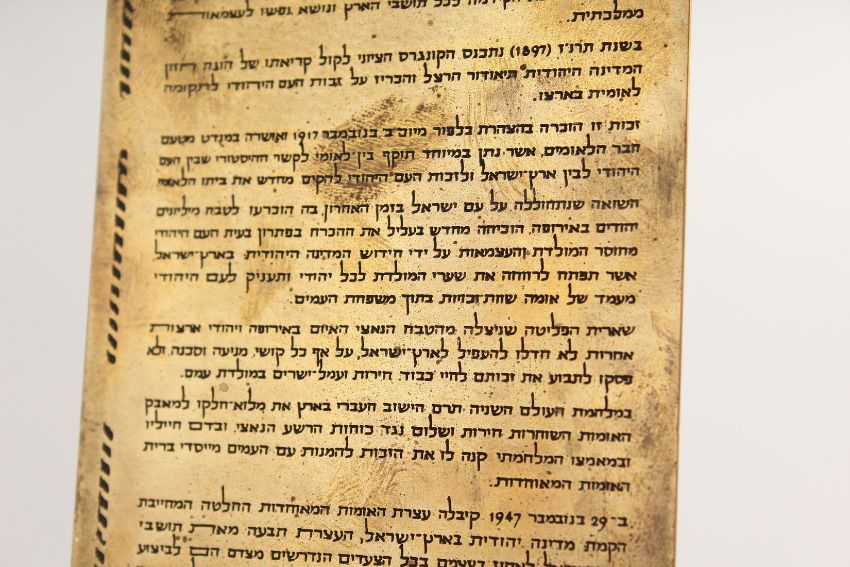 הקידמה לכל תושבי הארץ ונושא נפשו לעצמאות
ממלכתית.
בשנת תרנ״ז (1897) נתכנס הקונגרס הציוני לקול קריאתו של הוגה חזון
המדינה היהודית תיאודור הרצל והכריז על זכות העם היהודי לתקומה
לאומית בארצו.
זכות זו הוכרה בהצהרת בלפור מיום ב׳ בנובמבר 1917 ואושרה במנדט מטעם
חבר הלאומים, אשר נתן במיוחד תוקף בין-לאומי לקשר ההיסטורי שבין העם
היהודי לבין ארץ-ישראל ולזכות העם היהודי להקים מחדש את ביתו הלאומי.
השואה שנתחוללה על עם ישראל בזמן האחרון, בה הוכרעו לטבח מיליונים
יהודים באירופה, הוכיחה מחדש בעליל את ההכרח בפתרון בעית העם היהודי
מחוסר המולדת והעצמאות על-ידי חידוש המדינה היהודית בארץ-ישראל
אשר תפתח לרווחה את שערי המולדת לכל יהודי ותעניק לעם היהודי
מעמד של אומה שוות-זכויות בתוך משפחת העמים.
שארית הפליטה שניצלה מהטבח הנאצי האיום באירופה ויהודי ארצות
אחרות לא חדלו להעפיל לארץ-ישראל, על אף כל קושי, מניעה וסכנה, ולא
פסקו לתבוע את זכותם לחיי כבוד, חירות ועמל-ישרים במולדת עמם.
במלחמת העולם השניה תרם הישוב העברי בארץ את מלוא-חלקו למאבק
האומות השוחרות חירות ושלום נגד כוחות הרשע הנאצי, ובדם חייליו
ובמאמצו המלחמתי קנה לו את הזכות להמנות עם העמים מייסדי ברית
האומות המאוחדות.
ב-29 בנובמבר 1947 קיבלה עצרת האומות המאוחדות החלטה המחייבת
הקמת מדינה יהודית בארץ-ישראל, העצרת תבעה מאת תושבי
לאחוז בעצמם בכל הצעדים הנדרשים מצדם הם לביצוע